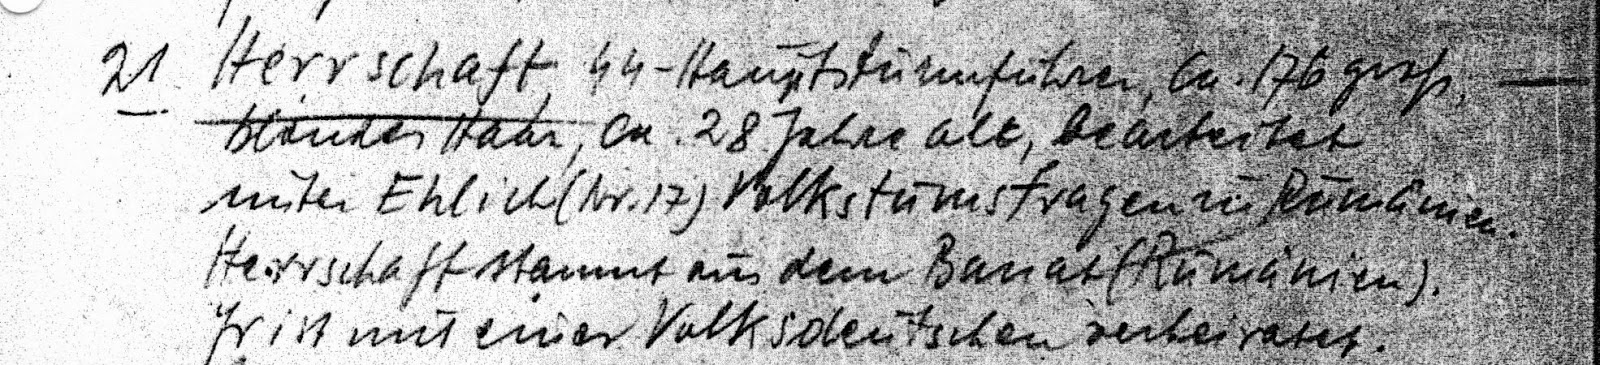 21. Herrschaft, SS-Hauptsturmführer, ca. 176 gross,
blondes Haar, ca. 28 Jahre alt, bearbeitet
unter Ehlich (Nr. 17) Volkstumsfragen in Rumänien.
Herrschaft stammt aus dem Banat (Rumänien).
Er ist mit einer Volksdeutschen verheiratet.